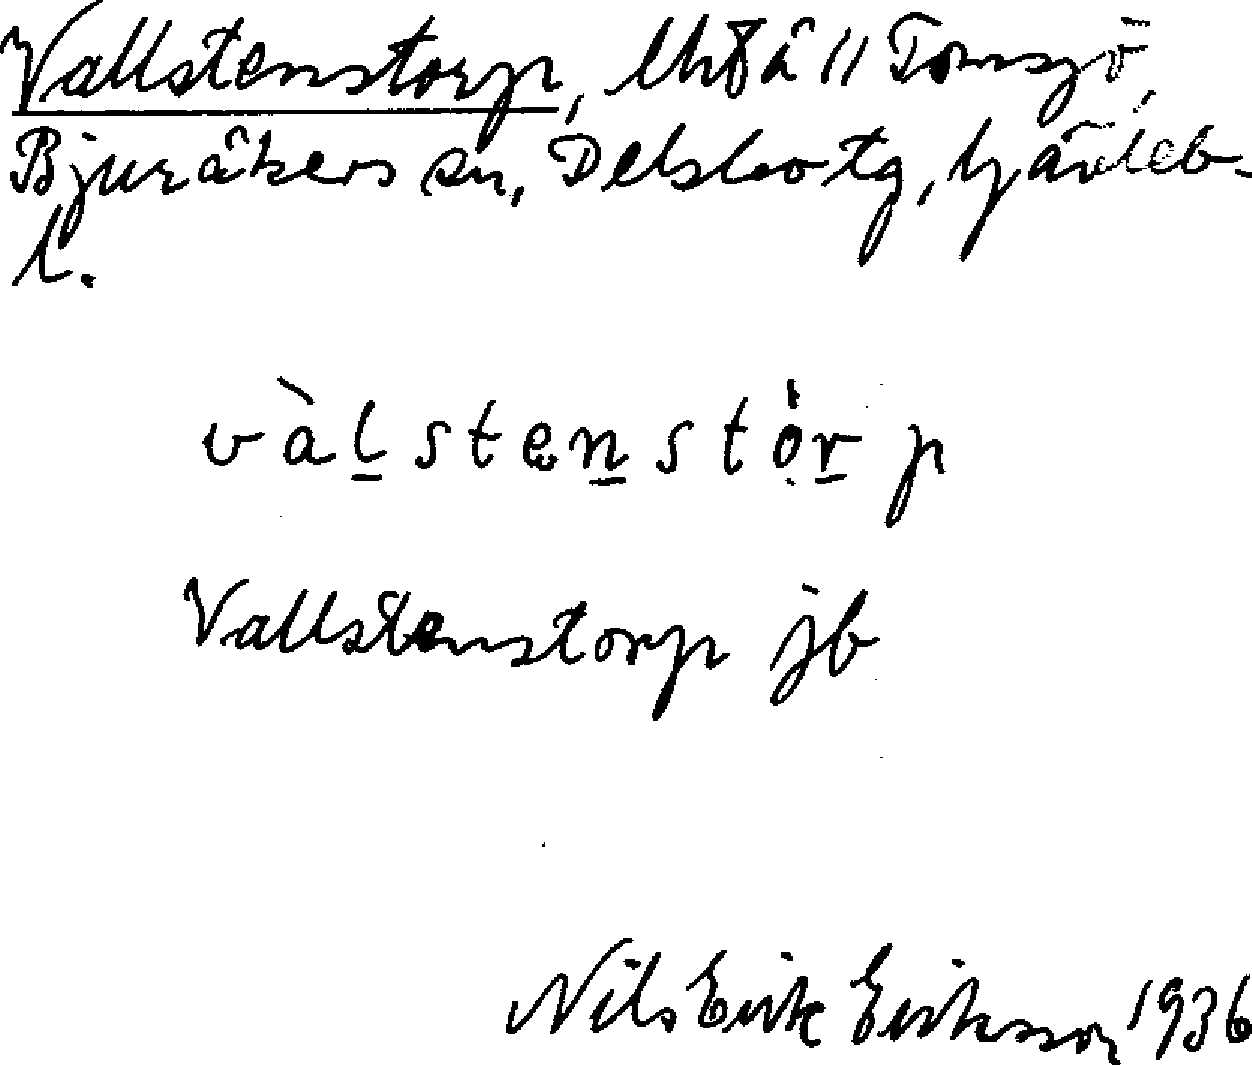 Vallstenstorp, lht å // Tomsjö,
Bjuråkers sn, Delsbo tg, Gävleb-
l.
vàlstenstòrp
Vallstenstorp jb
Nils Erik Eriksson 1936